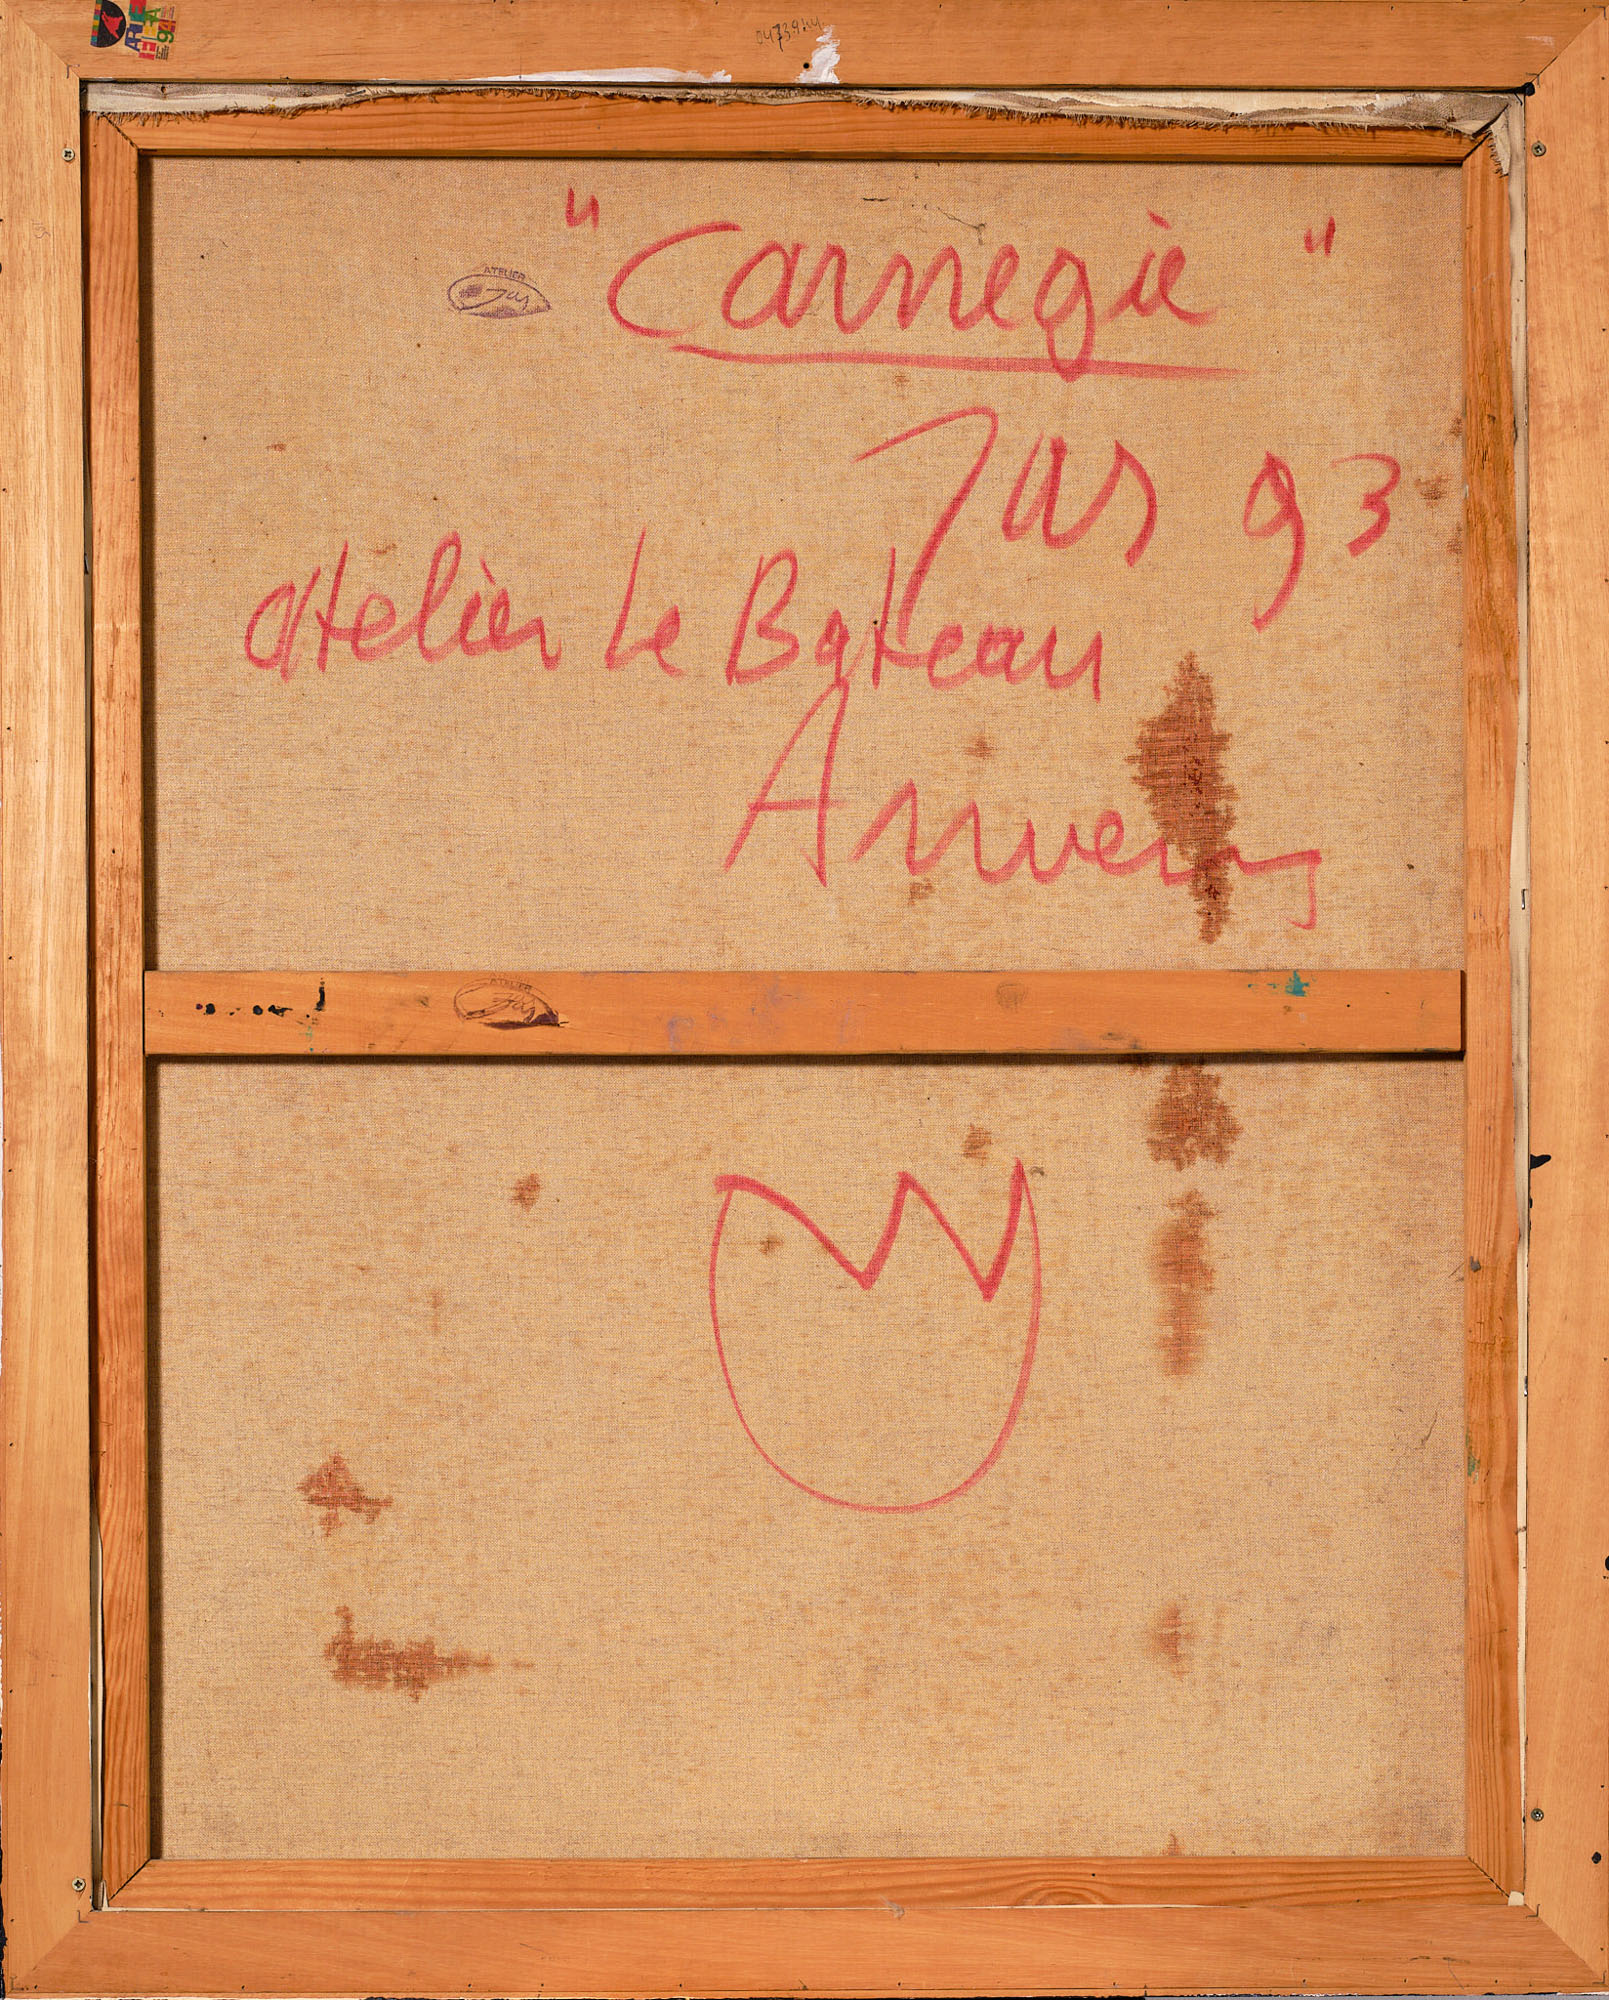 "Carnegie"
Jas 93
atelier Le Bateau
Anvers
ATELIER
Jas
ATELIER
Jas